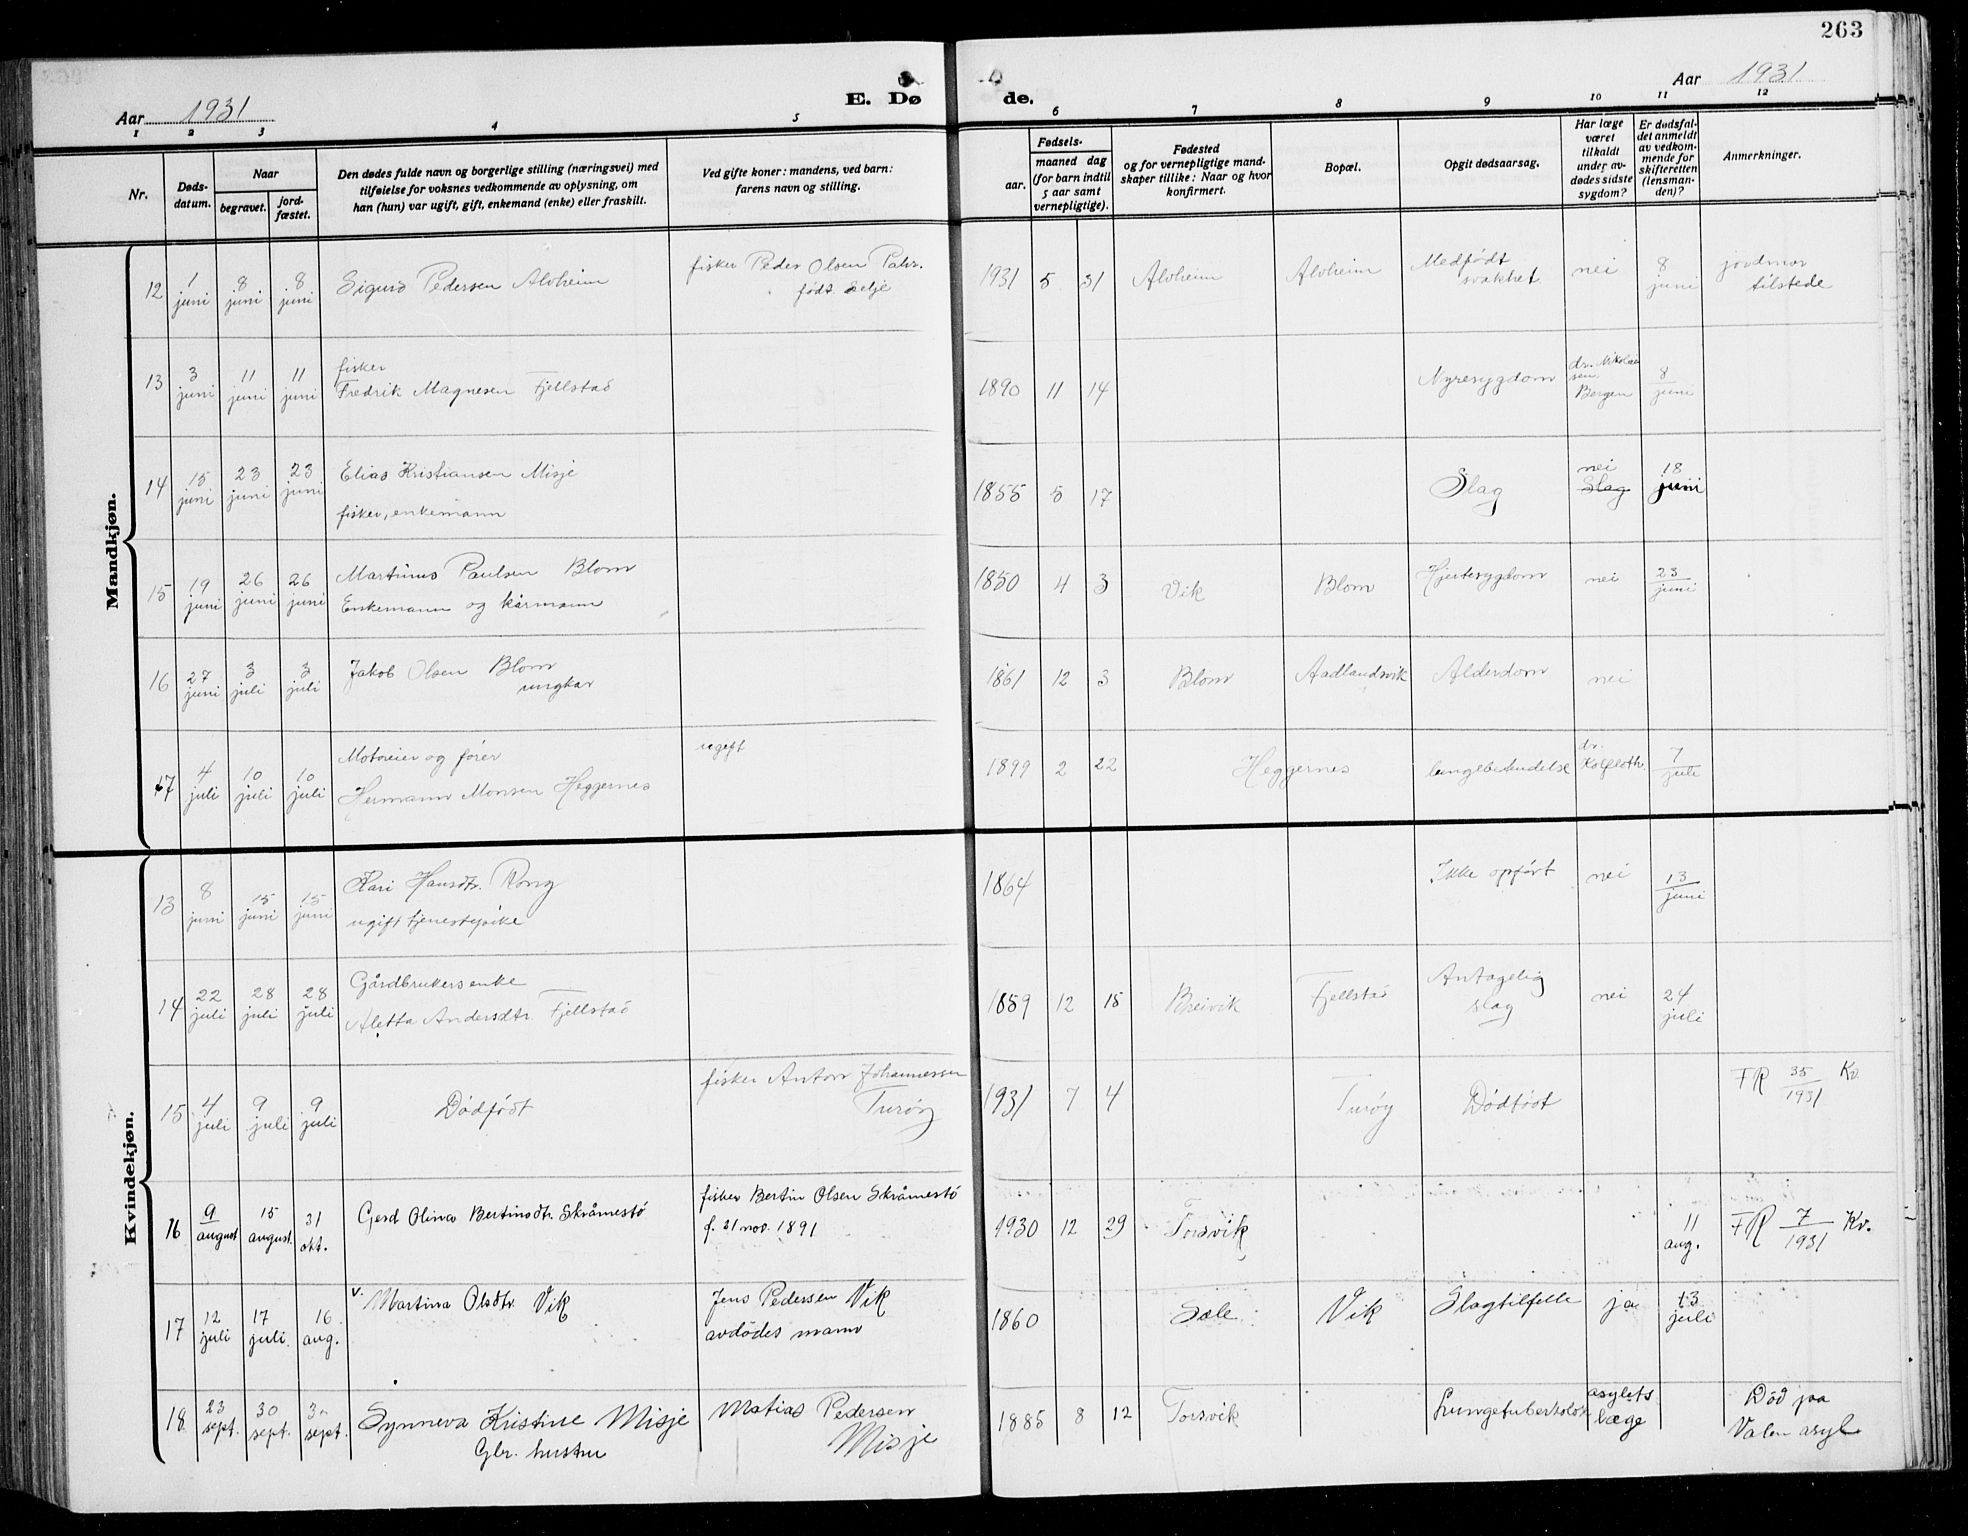 263
Aar 1931
E. Dø
de.
Aar 1931
1 2 3 4 5 6 7 8 9 10 11 12
Nr.
Døds-
datum.
Naar
begravet.
jord-
fæstet.
Den dødes fulde navn og borgerlige stilling (næringsvei) med
tilføielse for voksnes vedkommende av oplysning, om
han (hun) var ugift, gift, enkemand (enke) eller fraskilt.
Ved gifte koner: mandens, ved barn:
farens navn og stilling.
Fødsels-
aar.
maaned dag
(for barn indtil
5 aar samt
vernepligtige).
Fødested
og for vernepligtige mand-
skaper tillike: Naar og hvor
konfirmert.
Bopæl.
Opgit dødsaarsag.
Har læge
været
tilkaldt
under av-
dødes sidste
sygdom?
Er dødsfal-
det anmeldt
av vedkom-
mende for
skifteretten
(lensman-
den)?
Anmerkninger.
Mandkjøn.
12 1 juni 8 juni 8 juni
Sigurd Pedersen Alvheim
fisker Peder Olsen
født Selje
1931 5 31 Alvheim Alvheim
Medfødt
svakhet
nei
8 juni
jordmor
tilstede
13 3 juni 11 juni 11 juni
fisker
Fredrik Magnesen Fjellstad
1890 11 14
Nyresygdom
dr. Nikolai
sen.
Bergen
8 juni
14 15 juni 23 juni 23 juni
Elias Kristiansen Misje
fisker, enkemann
1855 5 17
Slag
nei
Slag
18 juni
15 19 juni 26 juni 26 juni
Martinus Paulsen Blom
Enkemann og kårmann
1850 4 3 Vik Blom Hjertesygdom nei 23 juni
16 27 juni 3 juli 3 juli
Jakob Olsen Blom
ungkar
1861 12 3 Blom Aadlandsvik Alderdom nei
17 4 juli 10 juli 10 juli
Motoreier og fører
Hermann Monsen Heggernes
ugift
1899 2 22 Heggernes lungebetendelse
dr.
7 juli
Kvindekjøn.
13 8 juni 15 juni 15 juni
Kari Hansdtr. Rong
ugift tjenestepike
1864
Ikke opført nei 13 juni
14 22 juli 28 juli 28 juli
Gårdbrukersenke
Aletta Andersdtr. Fjellstad
1859 12 15 Breivik Fjellstad
Antagelig
slag
nei
24 juli
15 4 juli 9 juli 9 juli
Dødfødt
fisker Anton Johannessen
Turøy
1931 7 4 Turøy Dødfødt
FR 35/1931 Kv.
16 9 august 15 august. 31 okt.
Gerd Olina Bertinsdtr. Skråmestø
fisker Bertin Olsen Skråmestø
f. 21 nov. 1891
1930 12 29 Torsvik
11 aug.
FR 7/1931 Kv.
17 12 juli 17 juli. 16 aug.
v. Martina Olsdtr. Vik
Jens Pedersen Vik
avdødes mann
1860 Sæle Vik Slagtilfelle ja 13 juli
18 23 sept. 30 sept. 30 sept.
Synneva Kristine Misje
Gbr. hustru
Matias Pedersen
Misje
1885 8 12 Torsvik
Lungetuberkolose
asylets
læge
Død paa
Valen asyl